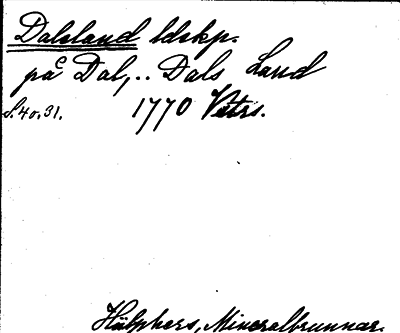 Dalsland ldskp.
på Dal, .. Dals Land
S. 40, 31. 1770 Vetrs.
Hülphers, Mineralbrunnar.